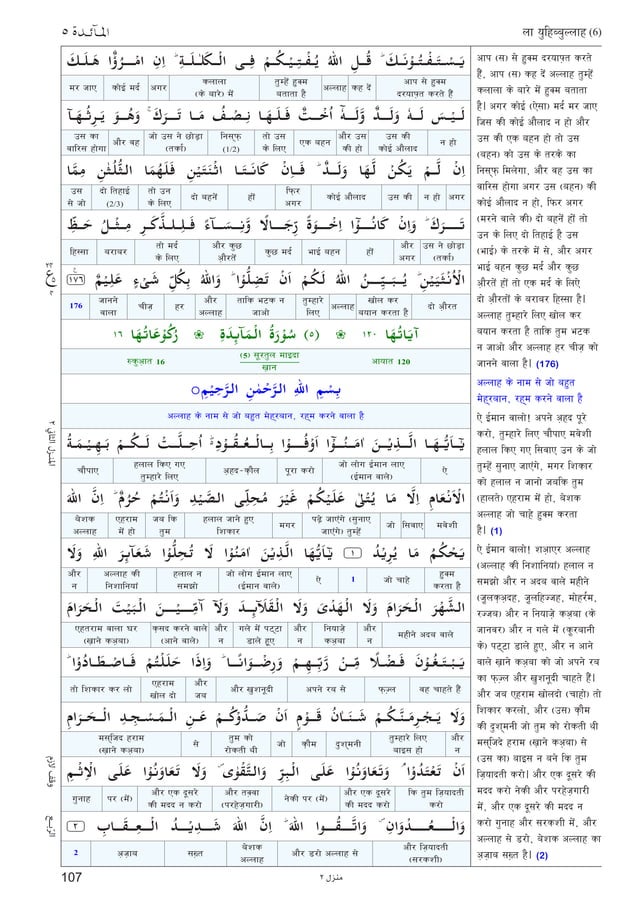 المآئدة ٥
ला युहिब्बुल्लाह (6)
يَسْتَفْتُوْنَكَ ؕ قُلِ اللّٰهُ يُفْتِيْكُمْ فِى الْكَلٰلَةِ ؕ اِنِ امْرُؤٌا هَلَكَ
आप से हुक्म दरयाफ़्त करते हैं
कह दें
अल्लाह
तुम्हें हुक्म बताता है
कलाला (के बारे) में
अगर
कोई मर्द
मर जाए
لَيْسَ لَهٗ وَلَدٌ وَّلَهٗۤ اُخْتٌ فَلَهَا نِصْفُ مَا تَرَكَ ۚ وَهُوَ يَرِثُهَاۤ
न हो
उस की कोई औलाद
और उस की हो
एक बहन
तो उस के लिए
निस्फ़ (1/2)
जो उस ने छोड़ा (तर्का)
और वह
उस का वारिस होगा
اِنْ لَّمْ يَكُنْ لَّهَا وَلَدٌ ؕ فَاِنْ كَانَتَا اثْنَتَيْنِ فَلَهُمَا الثُّلُثٰنِ مِمَّا
अगर
न हो
उस की
कोई औलाद
फिर अगर
हों
दो बहनें
तो उन के लिए
दो तिहाई (2/3)
उस से जो
تَرَكَ ؕ وَاِنْ كَانُوْۤا اِخْوَةً رِّجَالًا وَّنِسَآءً فَلِلذَّكَرِ مِثْلُ حَظِّ
उस ने छोड़ा (तर्का)
और अगर
हों
भाई बहन
कुछ मर्द
और कुछ औरतें
तो मर्द के लिए
बराबर
हिस्सा
الْاُنْثَيَيْنِ ؕ يُبَيِّنُ اللّٰهُ لَكُمْ اَنْ تَضِلُّوْا ؕ وَاللّٰهُ بِكُلِّ شَىْءٍ عَلِيْمٌ ۝١٧٦
दो औरत
खोल कर बयान करता है
अल्लाह
तुम्हारे लिए
ताकि भटक न जाओ
और अल्लाह
हर
चीज़
जानने वाला
176
اٰيَاتُهَا ١٢٠ ❀ (٥) سُوْرَةُ الْمَآئِدَةِ ❀ رُكُوْعَاتُهَا ١٦
आयात 120
(5) सूरतुल माइदा
ख़ान
रुकुआत 16
بِسْمِ اللّٰهِ الرَّحْمٰنِ الرَّحِيْمِ ○
अल्लाह के नाम से जो बहुत मेहरबान, रहम करने वाला है
يٰۤاَيُّهَا الَّذِيْنَ اٰمَنُوْۤا اَوْفُوْا بِالْعُقُوْدِ ؕ اُحِلَّتْ لَكُمْ بَهِيْمَةُ
ऐ
जो लोग ईमान लाए (ईमान वाले)
पूरा करो
अहद-क़ौल
हलाल किए गए तुम्हारे लिए
चौपाए
الْاَنْعَامِ اِلَّا مَا يُتْلٰى عَلَيْكُمْ غَيْرَ مُحِلِّى الصَّيْدِ وَاَنْتُمْ حُرُمٌ ؕ اِنَّ اللّٰهَ
मवेशी
सिवाए
जो
पढ़े जाएंगे (सुनाए जाएंगे) तुम्हें
मगर
हलाल जाने हुए शिकार
जब कि तुम
एहराम में हो
बेशक अल्लाह
يَحْكُمُ مَا يُرِيْدُ ۝١ يٰۤاَيُّهَا الَّذِيْنَ اٰمَنُوْا لَا تُحِلُّوْا شَعَآئِرَ اللّٰهِ وَلَا
हुक्म करता है
जो चाहे
1
ऐ
जो लोग ईमान लाए (ईमान वाले)
हलाल न समझो
अल्लाह की निशानियां
और न
الشَّهْرَ الْحَرَامَ وَلَا الْهَدْىَ وَلَا الْقَلَآئِدَ وَلَاۤ آمِّيْنَ الْبَيْتَ الْحَرَامَ
महीने अदब वाले
और न
नियाज़े कअबा
और न
गले में पट्टा डाले हुए
और न
क़सद करने वाले (आने वाले)
एहतराम वाला घर (ख़ाने कअबा)
يَبْتَغُوْنَ فَضْلًا مِّنْ رَّبِّهِمْ وَرِضْوَانًا ؕ وَاِذَا حَلَلْتُمْ فَاصْطَادُوْا ؕ
वह चाहते हैं
फज़्ल
अपने रब से
और खुशनूदी
और जब
एहराम खोल दो
तो शिकार कर लो
وَلَا يَجْرِمَنَّكُمْ شَنَاٰنُ قَوْمٍ اَنْ صَدُّوْكُمْ عَنِ الْمَسْجِدِ الْحَرَامِ
और न
तुम्हारे लिए बाइस हो
दुश्मनी
क़ौम
जो
तुम को रोकती थी
से
मस्जिद हराम (ख़ाने कअबा)
اَنْ تَعْتَدُوْا ۘ وَتَعَاوَنُوْا عَلَى الْبِرِّ وَالتَّقْوٰى ۪ وَلَا تَعَاوَنُوْا عَلَى الْاِثْمِ
कि तुम ज़ियादती करो
और एक दूसरे की मदद करो
नेकी पर (में)
और तक़्वा (परहेज़गारी)
और एक दूसरे की मदद न करो
पर (में)
गुनाह
وَالْعُدْوَانِ ۪ وَاتَّقُوا اللّٰهَ ؕ اِنَّ اللّٰهَ شَدِيْدُ الْعِقَابِ ۝٢
और ज़ियादती (सरकशी)
और डरो अल्लाह से
बेशक अल्लाह
सख़्त
अज़ाब
2
आप (स) से हुक्म दरयाफ़्त करते
हैं, आप (स) कह दें अल्लाह तुम्हें
कलाला के बारे में हुक्म बताता
है। अगर कोई (ऐसा) मर्द मर जाए
जिस की कोई औलाद न हो और
उस की एक बहन हो तो उस
(बहन) को उस के तरके का
निस्फ़ मिलेगा, और वह उस का
वारिस होगा अगर उस (बहन) की
कोई औलाद न हो, फिर अगर
(मरने वाले की) दो बहनें हों तो
उन के लिए दो तिहाई है उस
(भाई) के तरके में से, और अगर
भाई बहन कुछ मर्द और कुछ
औरतें हों तो एक मर्द के लिए
दो औरतों के बराबर हिस्सा है।
अल्लाह तुम्हारे लिए खोल कर
बयान करता है ताकि तुम भटक
न जाओ और अल्लाह हर चीज़ को
जानने वाला है। (176)
अल्लाह के नाम से जो बहुत
मेहरबान, रहम करने वाला है
ऐ ईमान वालो! अपने अहद पूरे
करो, तुम्हारे लिए चौपाए मवेशी
हलाल किए गए सिवाए उन के जो
तुम्हें सुनाए जाएंगे, मगर शिकार
को हलाल न जानो जबकि तुम
(हालते) एहराम में हो, बेशक
अल्लाह जो चाहे हुक्म करता
है। (1)
ऐ ईमान वालो! शआ़एर अल्लाह
(अल्लाह की निशानियां) हलाल न
समझो और न अदब वाले महीने
(जुलक़अदह, जुलहिज्जह, मोहर्रम,
रज्जब) और न नियाज़े कअबा (के
जानवर) और न गले में (कुरबानी
के) पट्टा डाले हुए, और न आने
वाले ख़ाने कअबा को जो अपने रब
का फज़्ल और खुशनूदी चाहते हैं।
और जब एहराम खोलदो (चाहो) तो
शिकार करलो, और (उस) क़ौम
की दुश्मनी जो तुम को रोकती थी
मस्जिदे हराम (ख़ाने कअबा) से
(उस का) बाइस न बने कि तुम
ज़ियादती करो। और एक दूसरे की
मदद करो नेकी और परहेज़गारी
में, और एक दूसरे की मदद न
करो गुनाह और सरकशी में, और
अल्लाह से डरो, बेशक अल्लाह का
अज़ाब सख़्त है। (2)
المنزل الثانی ٢
وقف لازم
الربع
107
منزل ٢